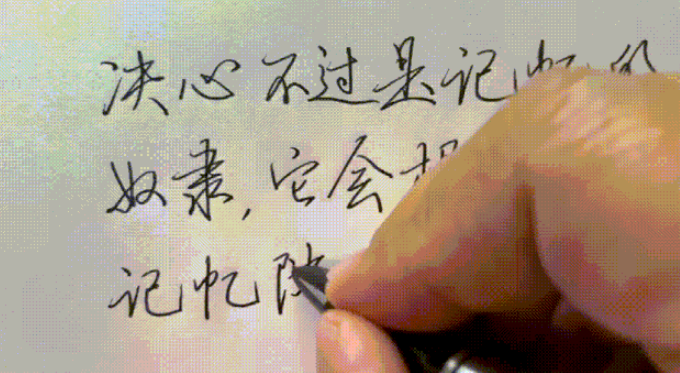 决心不过是记忆的
奴隶，它会根
记忆随